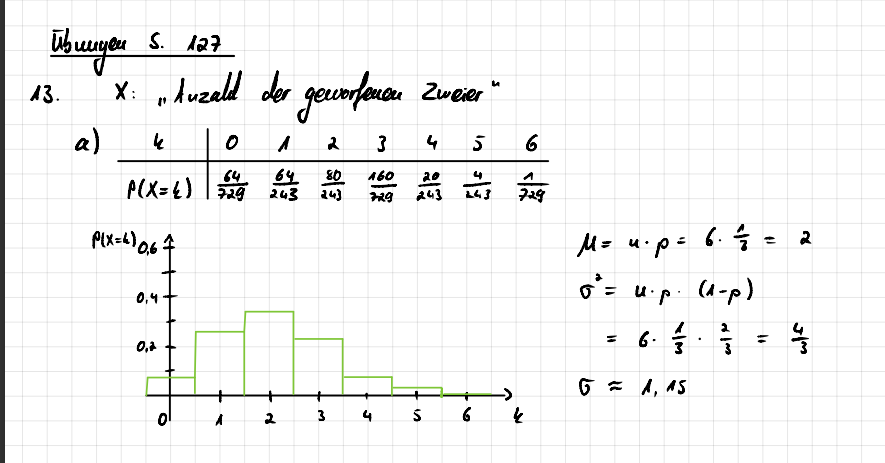 Übungen S. 127
13. X: „Anzahl der geworfenen Zweier"
a) k 0 1 2 3 4 5 6
P(X=k) 64/729 64/243 80/243 160/729 20/243 4/243 1/729
P(X=k)
0,6
0,4
0,2
0 1 2 3 4 5 6 k
μ = n · p = 6 · 1/3 = 2
σ² = n · p · (1-p)
= 6 · 1/3 · 2/3 = 4/3
σ ≈ 1,15